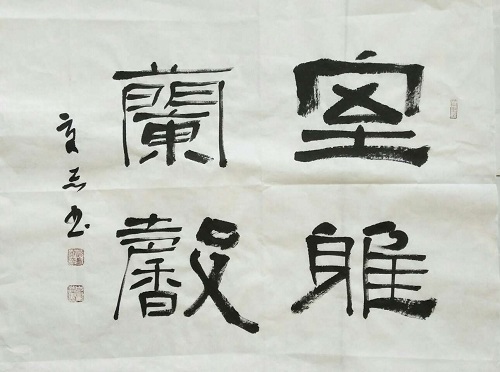 室雅
蘭馨
书